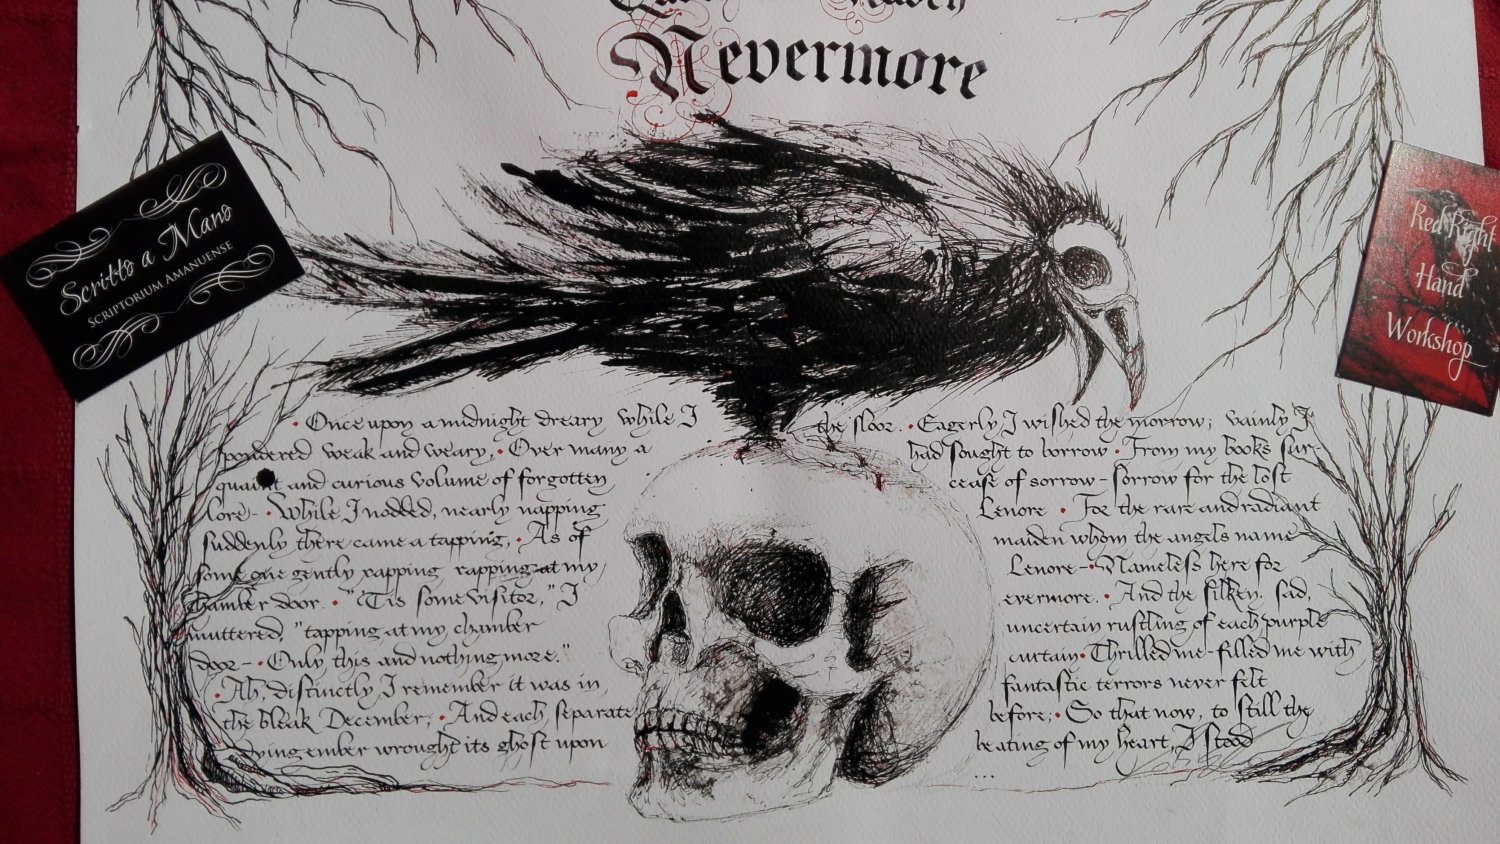 Quoth the Raven
Nevermore
Scritts a Mano
SCRIPTORIUM AMANUENSE
Red Right
Hand
Workshop
• Once upon a midnight dreary while I
pondered weak and weary, • Over many a
quaint and curious volume of forgotten
lore - • While I nodded, nearly napping
suddenly there came a tapping, • As of
some one gently rapping rapping at my
chamber door. • "'Tis some visitor," I
muttered, "tapping at my chamber
door - • Only this and nothing more."
• Ah, distinctly I remember it was in
the bleak December; • And each separate
dying ember wrought its ghost upon
the floor. • Eagerly I wished the morrow; vainly I
had sought to borrow • From my books sur-
cease of sorrow - sorrow for the lost
Lenore • For the rare and radiant
maiden whom the angels name
Lenore - • Nameless here for
evermore. • And the silken, sad,
uncertain rustling of each purple
curtain • Thrilled me - filled me with
fantastic terrors never felt
before; • So that now, to still the
beating of my heart, I stood
...